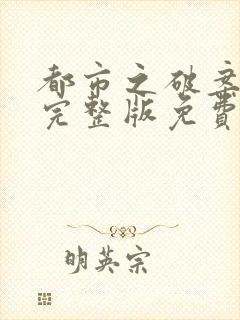 都市之破案
完整版免费
明英宗